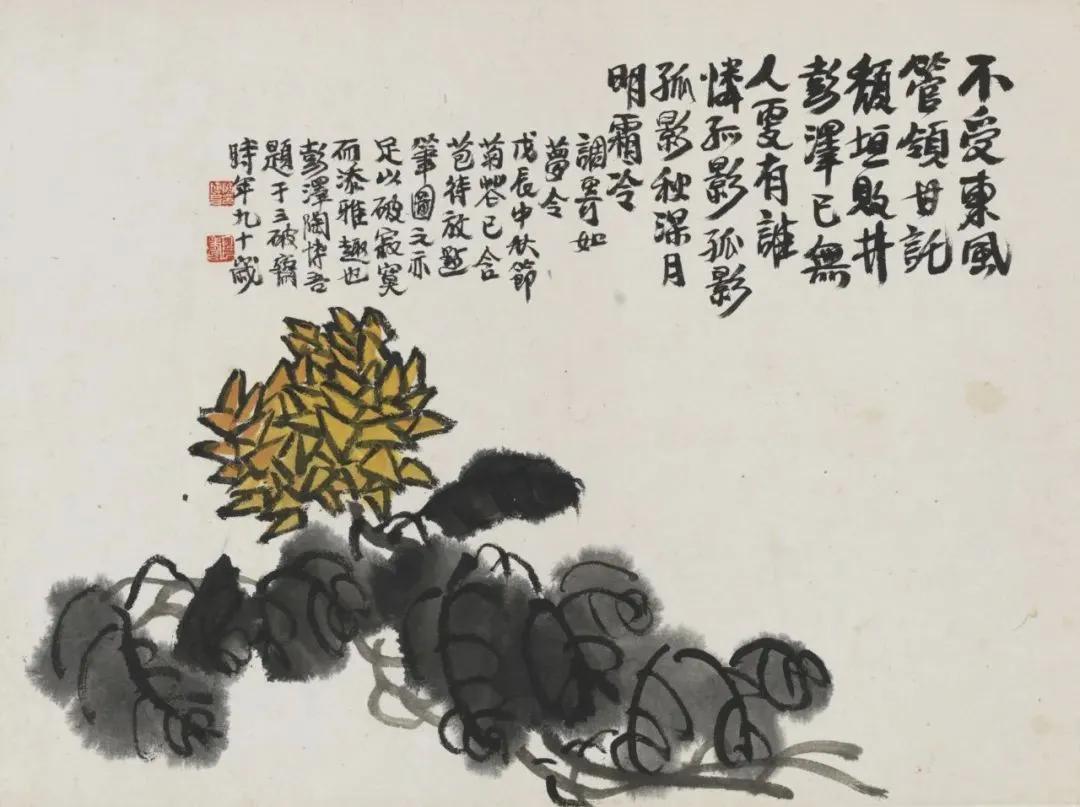 不受東風
管領甘託
頹垣敗井
彭澤已無
人更有誰
憐孤影孤影
孤影秋深月
明霜冷
調寄如
夢令
戊辰中秋節
菊已含
苞待放點
筆圖之亦
足以破寂寞
而添雅趣也
彭澤陶博吾
題于三破齋
時年九十歲